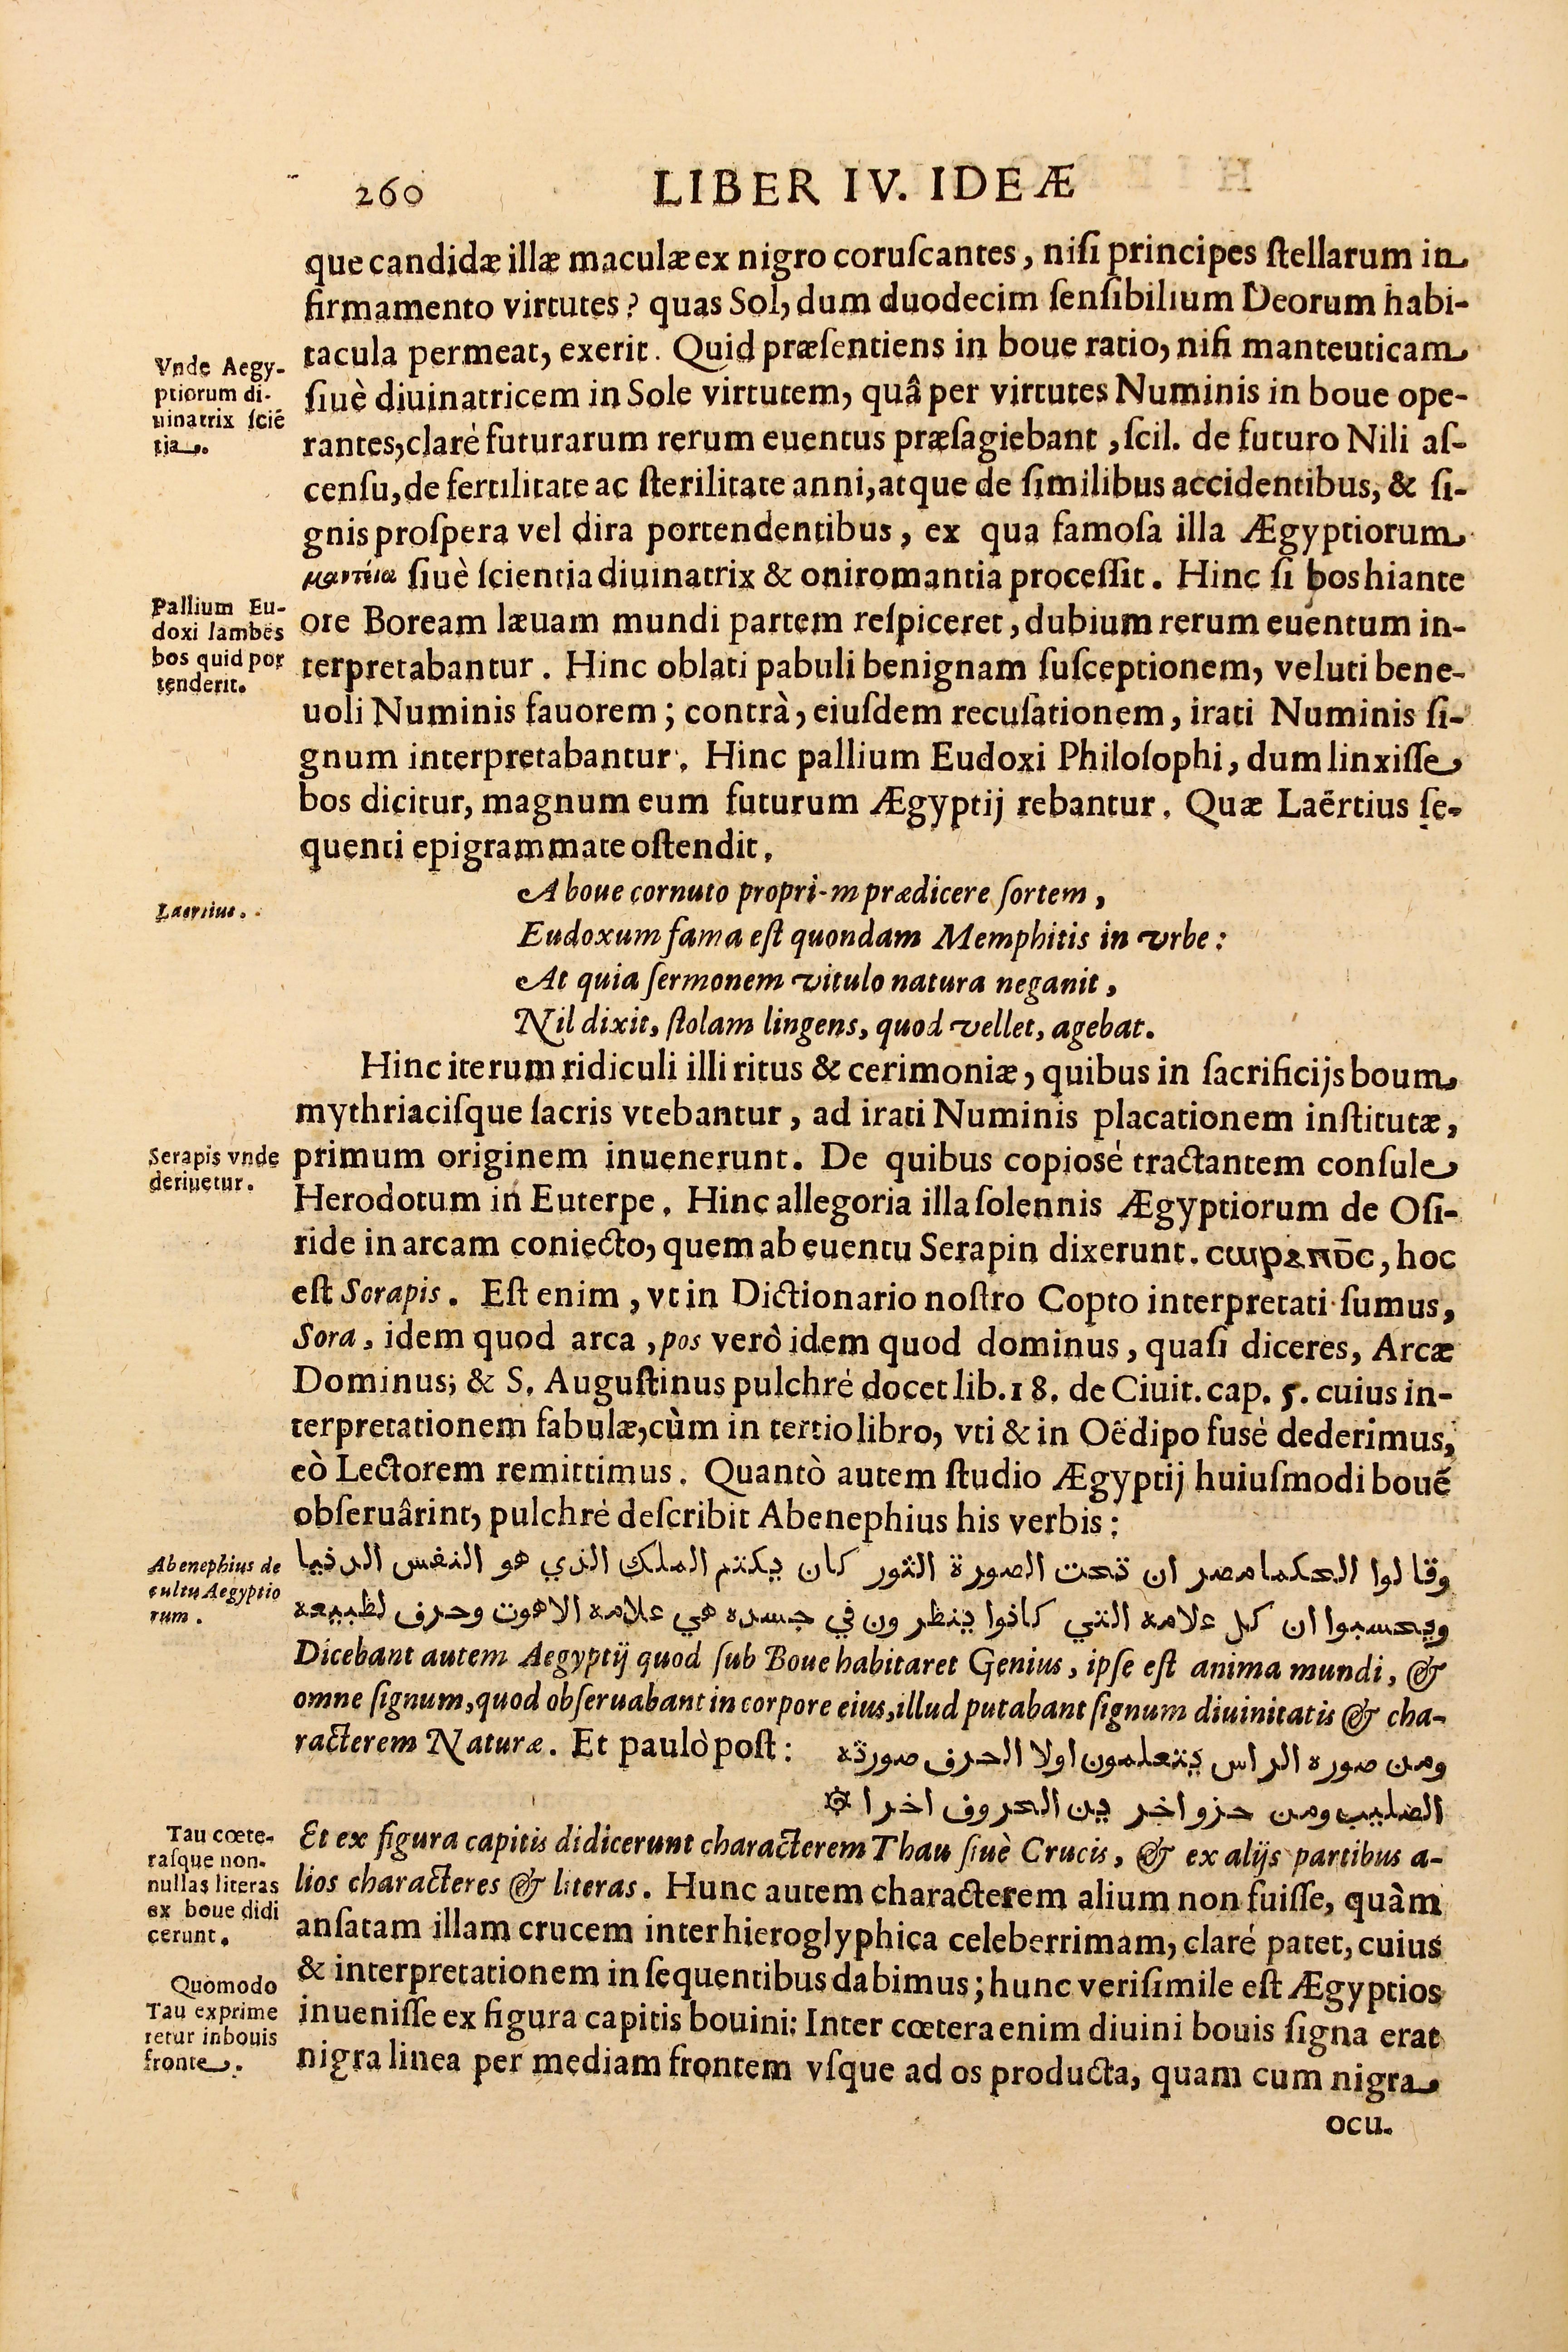 260 LIBER IV. IDEÆ
que candidæ illæ maculæ ex nigro coruſcantes, niſi principes ſtellarum in
firmamento virtutes? quas Sol, dum duodecim ſenſibilium Deorum habi-
tacula permeat, exerit. Quid præſentiens in boue ratio, niſi manteuticam
ſiuè diuinatricem in Sole virtutem, quâ per virtutes Numinis in boue ope-
rantes, claré futurarum rerum euentus præſagiebant, ſcil. de futuro Nili aſ-
cenſu, de fertilitate ac ſterilitate anni, atque de ſimilibus accidentibus, & ſi-
gnis proſpera vel dira portendentibus, ex qua famoſa illa Ægyptiorum
μαντεία ſiuè ſcientia diuinatrix & oniromantia proceſſit. Hinc ſi bos hiante
ore Boream læuam mundi partem reſpiceret, dubium rerum euentum in-
terpretabantur. Hinc oblati pabuli benignam ſuſceptionem, veluti bene-
uoli Numinis fauorem; contrà, eiuſdem recuſationem, irati Numinis ſi-
gnum interpretabantur. Hinc pallium Eudoxi Philoſophi, dum linxiſſe
bos dicitur, magnum eum futurum Ægyptij rebantur. Quæ Laërtius ſe-
quenti epigrammate oſtendit.
A boue cornuto propri-m prædicere ſortem,
Eudoxum fama eſt quondam Memphitis in vrbe:
At quia ſermonem vitulo natura neganit,
Nil dixit, ſtolam lingens, quod vellet, agebat.
Hinc iterum ridiculi illi ritus & cerimoniæ, quibus in ſacrificijs boum
mythriaciſque ſacris vtebantur, ad irati Numinis placationem inſtitutæ,
primum originem inuenerunt. De quibus copioſé tractantem conſule
Herodotum in Euterpe. Hinc allegoria illa ſolennis Ægyptiorum de Oſi-
ride in arcam coniecto, quem ab euentu Serapin dixerunt. ⲥⲱⲣⲁⲡⲟ̅ⲥ, hoc
eſt Sorapis. Eſt enim, vt in Dictionario noſtro Copto interpretati ſumus,
Sora, idem quod arca, pos verò idem quod dominus, quaſi diceres, Arcæ
Dominus; & S. Auguſtinus pulchré docet lib. 18. de Ciuit. cap. 5. cuius in-
terpretationem fabulæ, cùm in tertio libro, vti & in Oëdipo fusè dederimus,
eò Lectorem remittimus. Quantò autem ſtudio Ægyptij huiuſmodi bouē
obſeruârint, pulchré deſcribit Abenephius his verbis:
وقا لوا الحكما مصر ان تحت الصورة الثور كان يكتتم الملك الذي هو النفس الدنيا
ويحسبوا ان كل علامه التي كانوا ينظرون في جسده هي علامه الاهوت وحرف لطبيعه
Dicebant autem Aegyptij quod ſub Boue habitaret Genius, ipſe eſt anima mundi, &
omne ſignum, quod obſeruabant in corpore eius, illud putabant ſignum diuinitatis & cha-
racterem Naturæ. Et paulò poſt: ومن صوره الراس يتعلمون اولا الحرف صورته
الصليب ومن حزو اخر ين الحروف اخرا
Et ex figura capitis didicerunt characterem Thau ſiuè Crucis, & ex alijs partibus a-
lios characteres & literas. Hunc autem characterem alium non fuiſſe, quàm
anſatam illam crucem inter hieroglyphica celeberrimam, claré patet, cuius
& interpretationem in ſequentibus dabimus; hunc veriſimile eſt Ægyptios
inueniſſe ex figura capitis bouini: Inter cœtera enim diuini bouis ſigna erat
nigra linea per mediam frontem vſque ad os producta, quam cum nigra
ocu.
Vnde Aegy-
ptiorum di-
uinatrix ſciē
tia.
Pallium Eu-
doxi lambēs
bos quid por
tenderit.
Laertius.
Serapis vnde
deriuetur.
Abenephius de
cultu Aegyptio
rum.
Tau cœte-
raſque non-
nullas literas
ex boue didi
cerunt.
Quomodo
Tau exprime
retur in bouis
fronte.